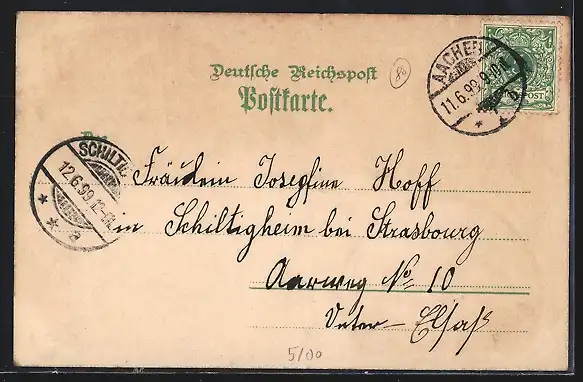 Deutsche Reichspost
Postkarte.
AACHEN
11.6.99. 9-10
SCHILTI
12.6.99. 12-
a
Fräulein Josefine Hoff
in Schiltigheim bei Strasbourg
Aarweg No 10
Unter-Elsaß
5/00